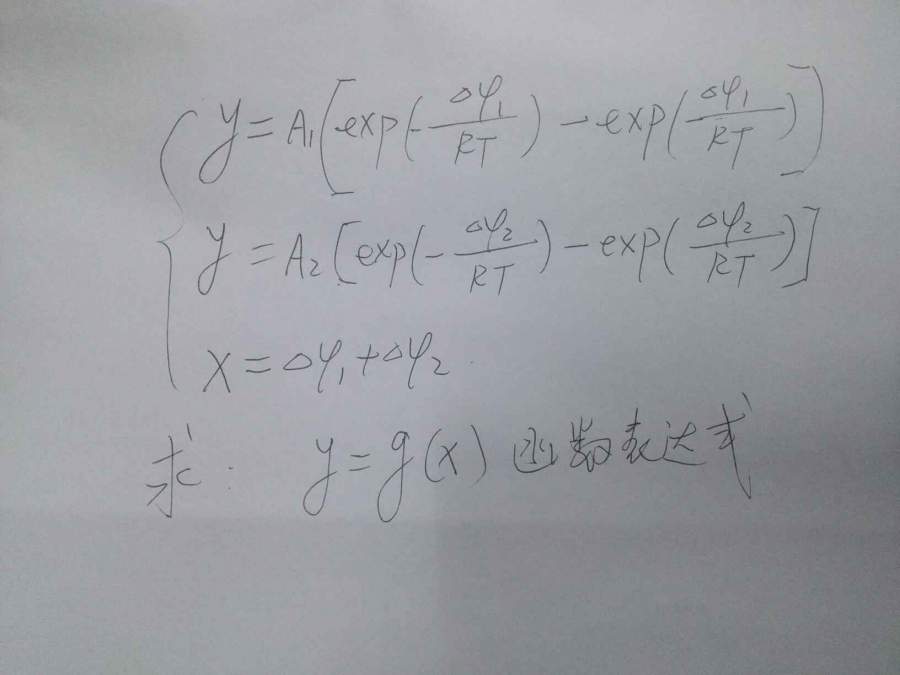 y = A₁[exp(-Δφ₁/RT) - exp(Δφ₁/RT)]
y = A₂[exp(-Δφ₂/RT) - exp(Δφ₂/RT)]
x = Δφ₁ + Δφ₂.
求: y = g(x) 函数表达式